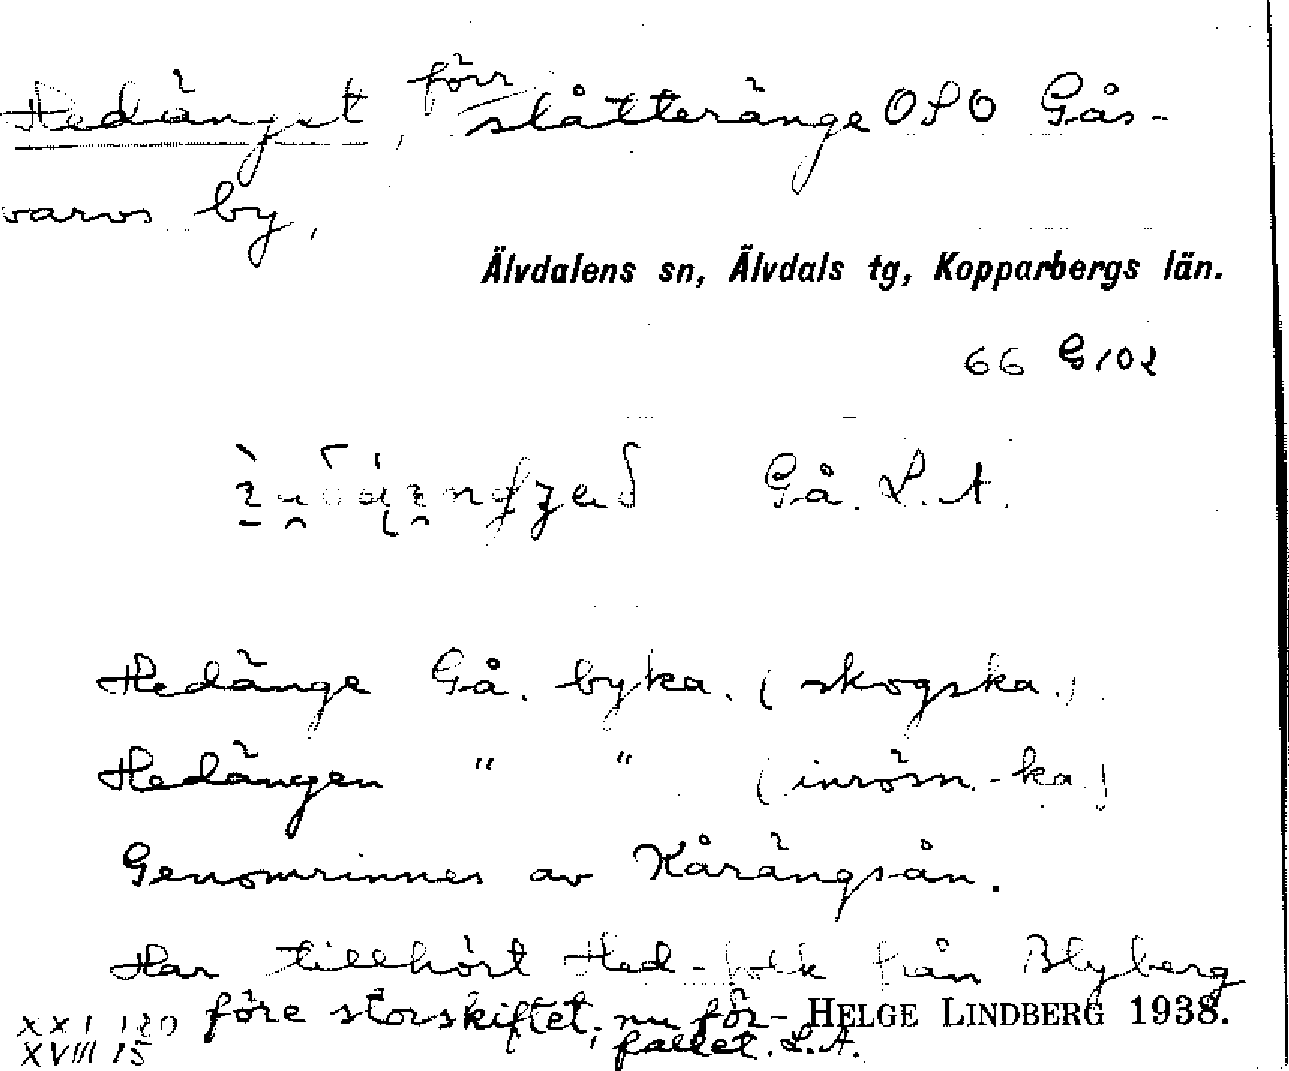 Hedänget, förr slåtteränge OSO Gås-
varvs by.
Älvdalens sn, Älvdals tg, Kopparbergs län.
66
Gå. L. A.
Hedänge Gå. byka. (skogska.)
Hedängen " " (inröm.-ka.)
Genomrinnes av Kårängsån.
Har tillhört Hed-folk från Blyberg
före storskiftet, nu för- HELGE LINDBERG 1938.
XXI 120
fallet. L. A.
XVIII 15